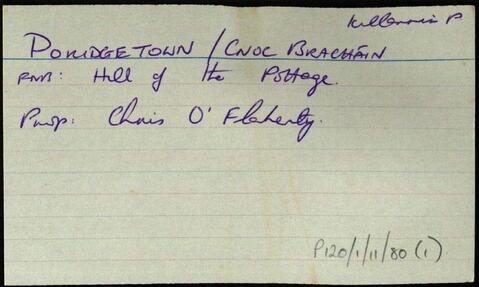 Killannin P
PORIDGETOWN / CNOC BRACHÁIN
RMB: Hill of the Pottage.
Prop: Chris O' Flaherty.
P120/1/11/80 (1)